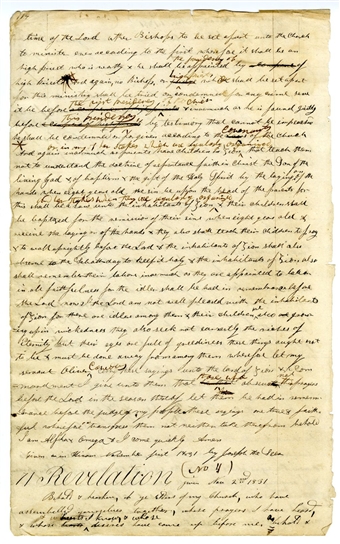 time of the Lord other Bishops to be set apart unto the Church
to minister even according to the first wherefore it shall be an
high priest who is worthy & he shall be appointed by
the presidency of
high Priesthood
again no Bishop or
shall be set apart
for this ministry shall be tried or condemned for any crime save
it be before
the first presidency
Church & inasmuch as he is found guilty
before
this presidency
by testimony that cannot be impeached
he shall be condemned or forgiven according to the
of the Church
And again
children in
that teach them
not to understand the doctrine of repentance faith in Christ the Son of the
living God & of baptism & the gift of the Holy Spirit by the laying of the
hands when eight years old the sin be upon the head of the parents for
this shall be a law unto the inhabitants of Zion & their children shall
be baptized for the remission of their sins when eight years old &
receive the laying on of the hands & they also shall teach their children to pray
& to walk uprightly before the Lord & the inhabitants of Zion shall also
observe the Sabbath day to keep it holy & the inhabitants of Zion also
shall remember their labors inasmuch as they are appointed to labor
in all faithfulness for the idler shall be had in remembrance before
the Lord now I the Lord am not well pleased with the inhabitants
of Zion for there are idlers among them & their children are also
up in wickedness they also seek not earnestly the riches of
Eternity but their eyes are full of greediness these things ought not
to be & must be done away from among them wherefore let my
servant Oliver
Cowdery
carry these sayings unto the land of Zion & a Com
mandment I give unto them that
observeth not
prayers
before the Lord in the season thereof let him be had in remem
brance before the judge of my people these sayings are true & faith
ful wherefore transgress them not neither take therefrom behold
I am Alpha & Omega & I come quickly Amen
Given
1831 by Joseph the Seer
A Revelation (No 4)
given Nov 2nd 1831
Behold & hearken, O ye Elders of my Church, who have
assembled yourselves together, whose prayers I have heard,
& whose
hearts I know, & whose
desires have come up before me,